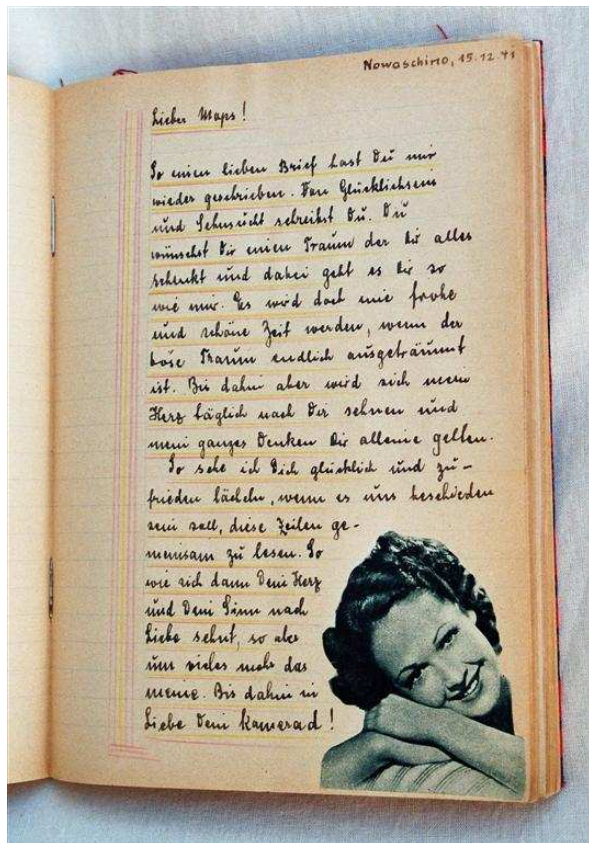 Nowoschino, 15.12.41
Lieber Maps!
So einen lieben Brief hast Du mir
wieder geschrieben. Von Glücklichsein
und Sehnsucht schreibst Du. Du
wünschst Dir einen Traum der Dir alles
schenkt und dabei geht es Dir so
wie mir. Es wird doch eine frohe
und schöne Zeit werden, wenn der
böse Traum endlich ausgeträumt
ist. Bis dahin aber wird sich mein
Herz täglich nach Dir sehnen und
mein ganzes Denken Dir alleine gelten.
So sehe ich Dich glücklich und zu-
frieden lächeln, wenn es uns beschieden
sein soll, diese Zeilen ge-
meinsam zu lesen. So
wie sich dann Dein Herz
und Dein Sinn nach
Liebe sehnt, so aber
um vieles mehr das
meine. Bis dahin in
Liebe Dein Kamerad!